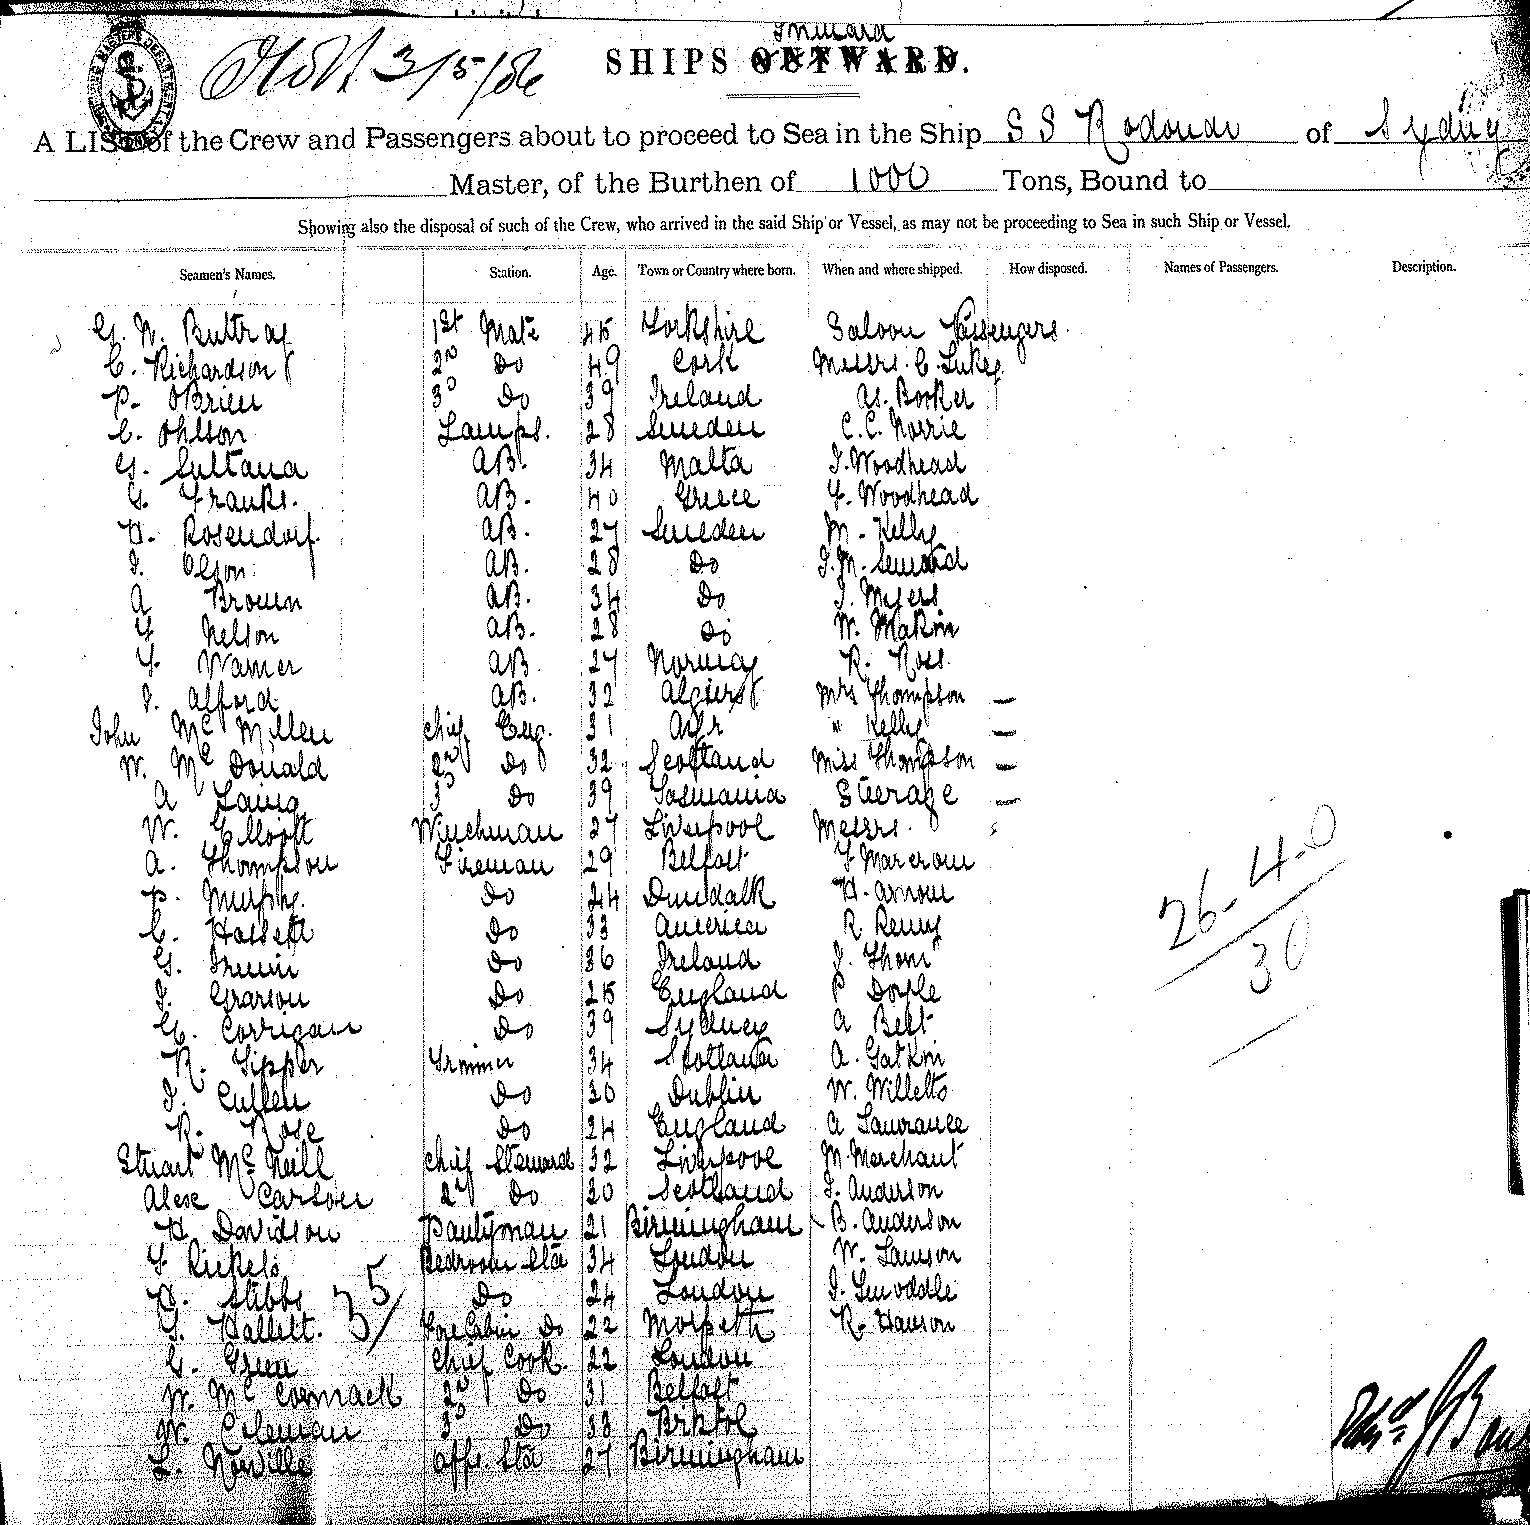 Inward
SHIPS OUTWARD.
3/5/86
A LIST of the Crew and Passengers about to proceed to Sea in the Ship S S Rodondo of Sydney
Master, of the Burthen of 1000 Tons, Bound to
Showing also the disposal of such of the Crew, who arrived in the said Ship or Vessel, as may not be proceeding to Sea in such Ship or Vessel.
Seamen's Names. Station. Age. Town or Country where born. When and where shipped. How disposed. Names of Passengers. Description.
G. W. Buttray 1st Mate 45 Yorkshire Saloon Passengers.
C. Richardson 2nd Do 49 Cork Messrs. C. Lukey
P. OBrien 3d Do 39 Ireland As. Booker
C. Ohlson Lamps. 28 Sweden C. C. Norrie
G. Sultana AB. 34 Malta J. Woodhead
G. Franks. AB. 40 Greece F. Woodhead
H. Rosendorf. AB. 27 Sweden M. Kelly
J. Olson AB. 28 Do J. M. Seward
A Brown AB. 34 Do J. Myers
F. Nelson AB. 28 Do W. Makin
F. Warner AB. 27 Norway R. Ross.
J. Alford AB. 32 Algiers Mrs Thompson
John McMillen Chief Eng. 31 Ayr " Kelly
W. McDonald 2nd Do 32 Scotland Miss Thompson
A Laing 3d Do 39 Tasmania Steerage
W. Winchman 27 Liverpool Messrs.
A. Thompson Fireman 29 Belfast F Marcrow
P. Murphy. Do 24 Dundalk H. Arnow
C. Hassett Do 33 America R Renny
G. Irwin Do 36 Ireland J. Thom
J. Grarson Do 25 England P Doyle
G. Corrigan Do 39 Sydney A Belt
R. Tipper Trimmer 34 Scotland A. Gatkin
J. Cullen Do 30 Dublin W. Willetts
R. Rose Do 24 England A Lawrance
Stuart McNeill Chief Steward 32 Liverpool M Merchant
Alex Carson 2nd Do 30 Scotland J. Anderson
H Davidson Pantyman 21 Birmingham B. Anderson
F Rickets Bedroom Std 34 London W. Lawson
H. Stibbs Do 24 London J.
F. Hallett. Fore Cabin Do 22 Morpeth R. Hawson
C. Green Chief Cook. 22 London
W. McCormack 2nd Do 31 Belfast
W. Coleman 3d Do 33 Bristol
L. Norville Affs. Std 27 Birmingham
35/
26-4-0
30